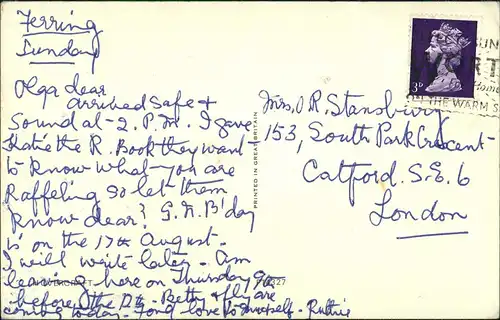 Ferring
Sunday
Olga dear
arrived safe &
Sound at - 2. P.M. I gave
Katie the R. Book they want
to know what you are
Raffeling so let them
know dear? G. N. B'day
is on the 17th August -
I will write later - am
leaving here on Thursday
before the 12 - Betty & are
coming today - Fond love to - Ruthie
PRINTED IN GREAT BRITAIN
3D
THE WARM
Mrs. O R. Stansbury
153, South Park Crescent -
Catford. S.E. 6
London